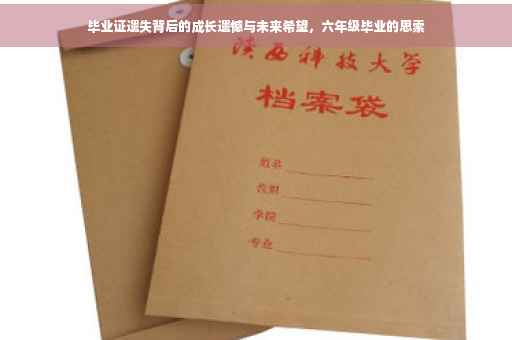 毕业证遗失背后的成长遗憾与未来希望，六年级毕业的思索
陕西科技大学
档案袋
姓名
教职
学院
专业